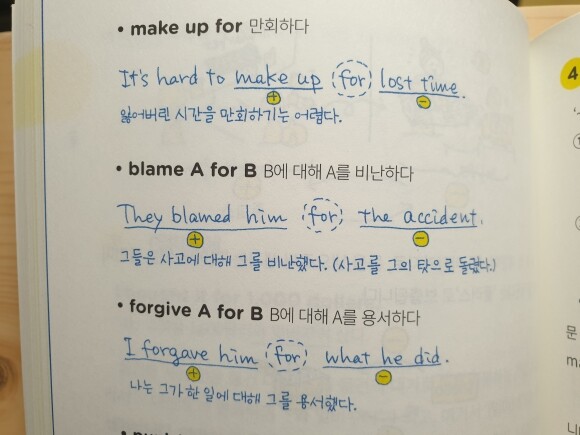 • make up for 만회하다
It's hard to make up for lost time.
+ −
잃어버린 시간을 만회하기는 어렵다.
• blame A for B B에 대해 A를 비난하다
They blamed him for the accident.
+ −
그들은 사고에 대해 그를 비난했다. (사고를 그의 탓으로 돌렸다.)
• forgive A for B B에 대해 A를 용서하다
I forgave him for what he did.
+ −
나는 그가 한 일에 대해 그를 용서했다.
4
문
ma
니